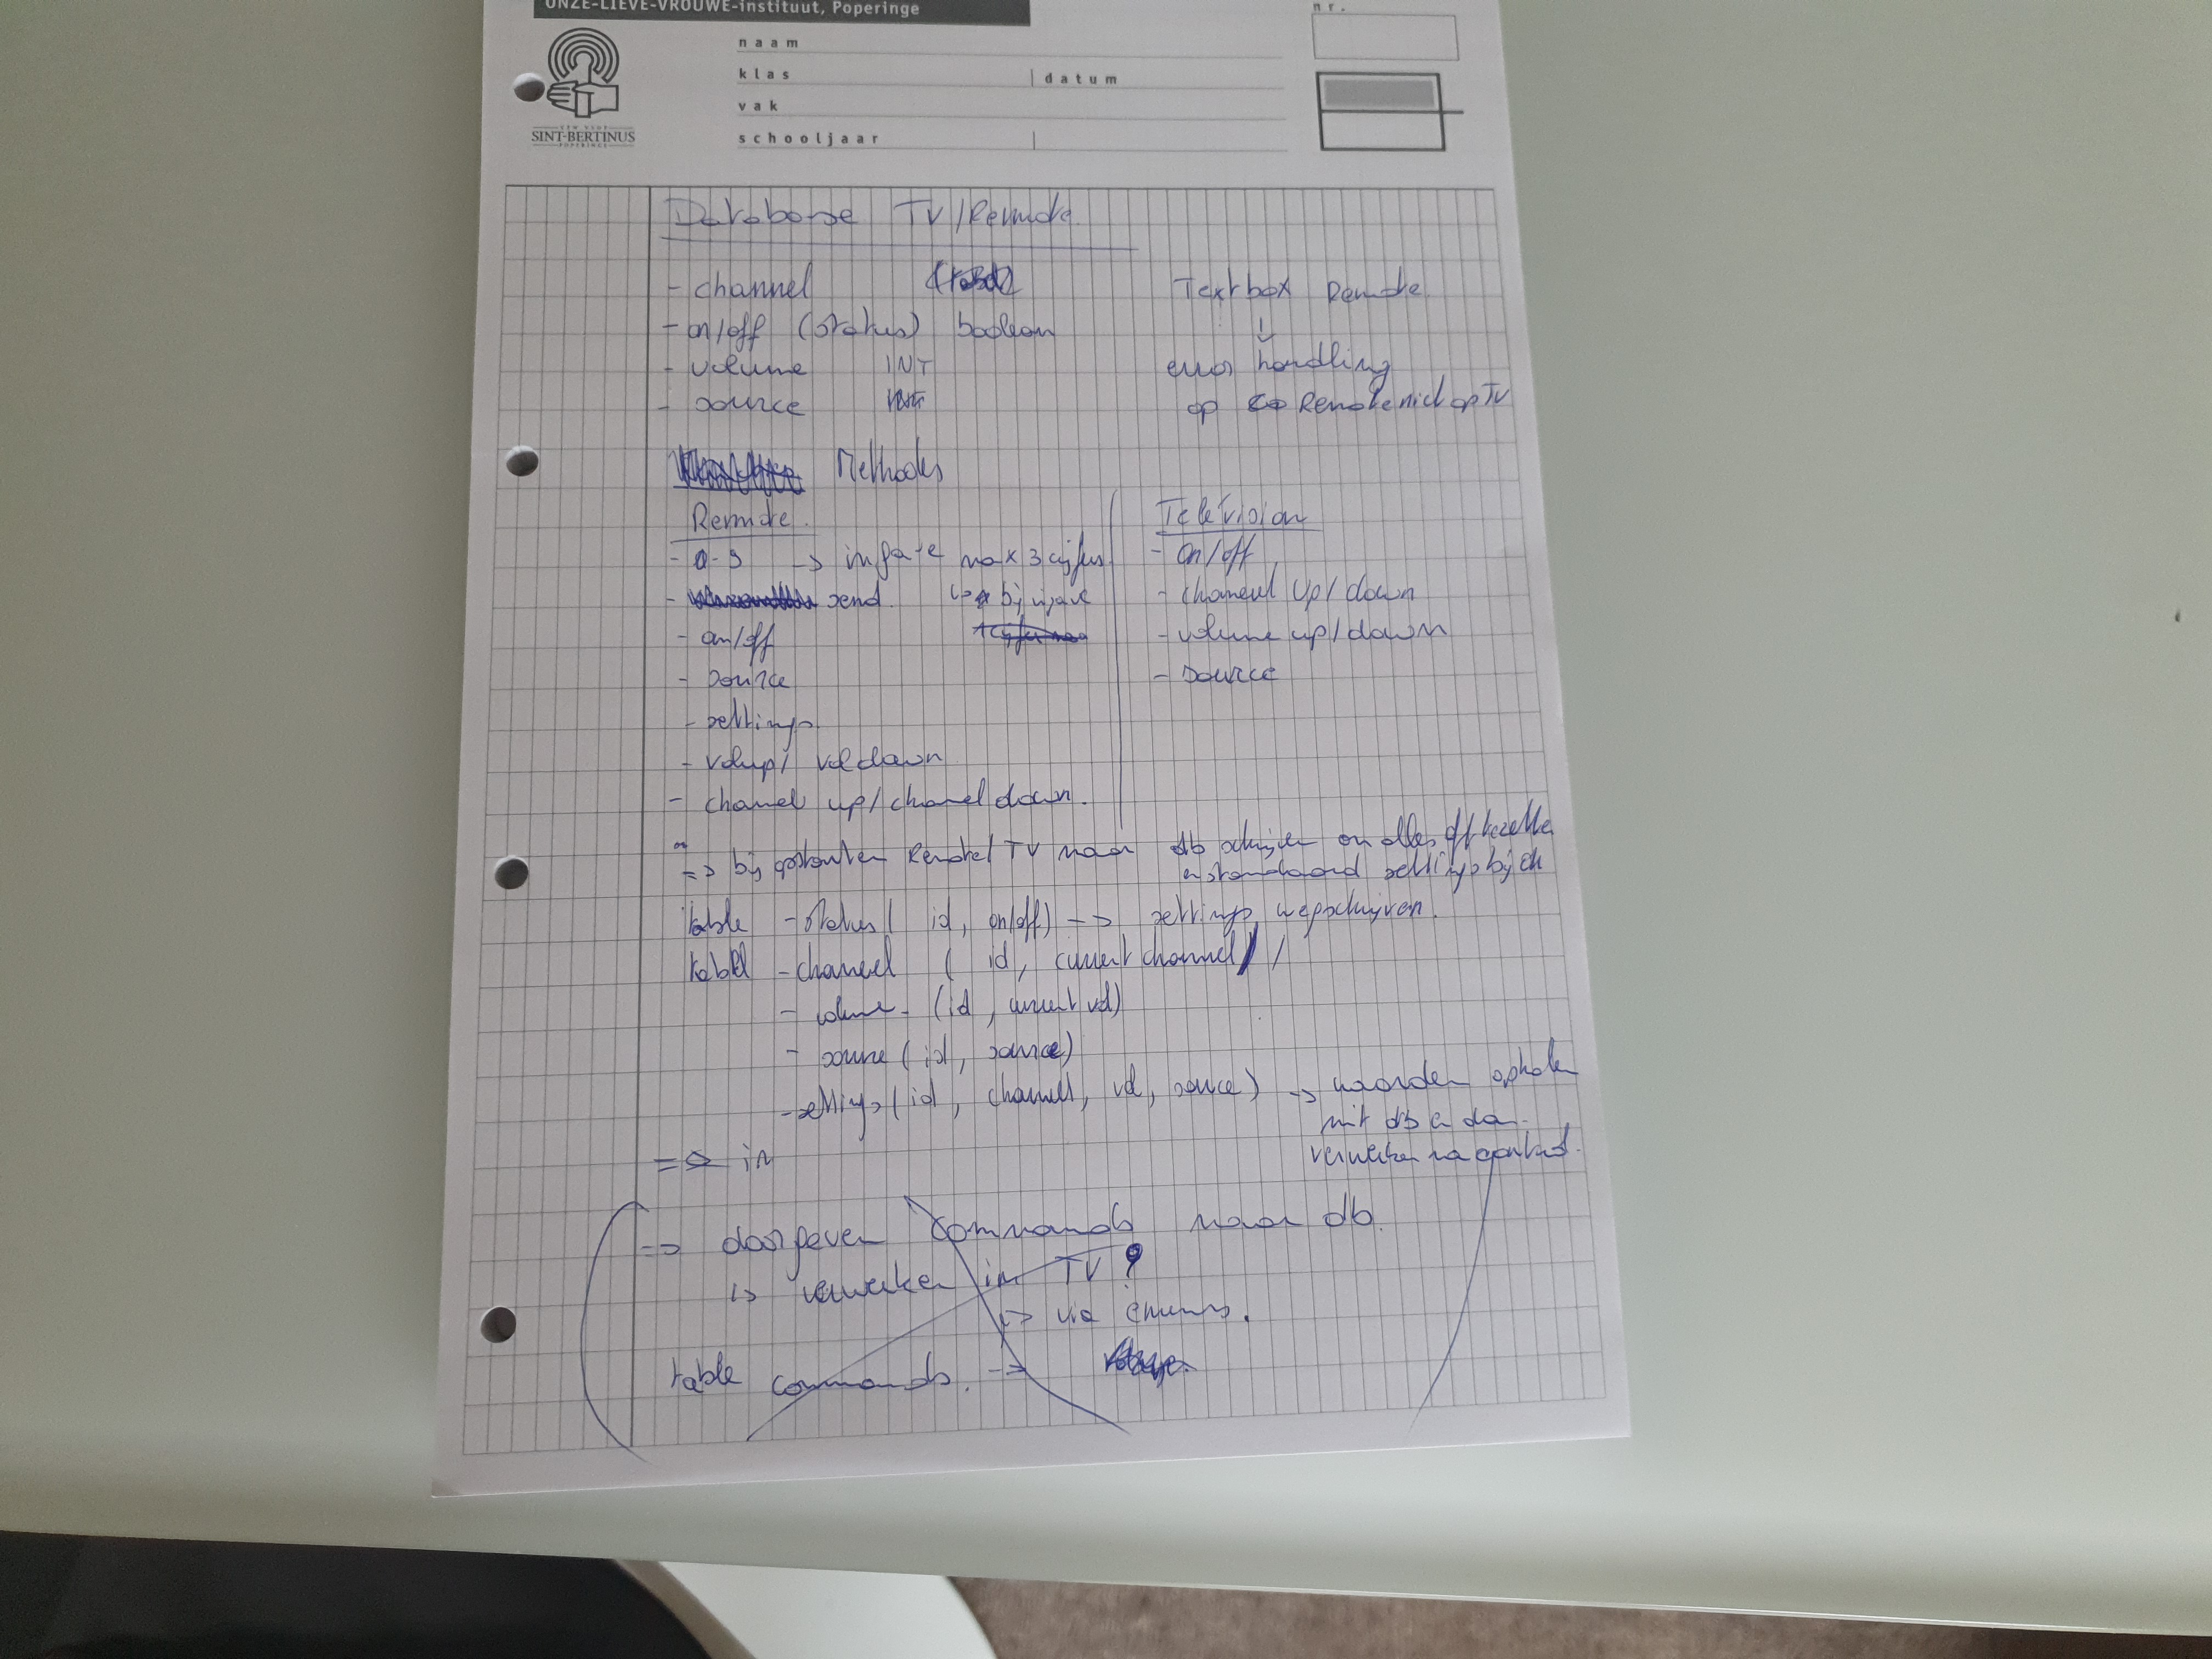 ONZE-LIEVE-VROUWE-instituut, Poperinge
nr.
naam
klas datum
vak
schooljaar
SINT-BERTINUS
POPERINGE
Database TV/Remote
- channel
- on/off (status) boolean
- volume INT
- source
Textbox Remote
↓
error handling
op Remote niet op TV
Methodes
Remote
- 0-9 -> ingave max 3 cijfers
- send. bij ingave
- on/off
- source
- settings
- volup/ vol down
- channel up/channel down.
Television
- on/off
- channel up/down
- volume up/down
- source
=> bij opstarten Remote/TV naar db schrijven om alles off te zetten
standaard settings bij
table - status ( id, on/off) -> settings wegschrijven.
tabel - channel ( id, current channel) /
- volume - (id, current vol)
- source (id, source)
- settings (id, channel, vol, source) -> waarden ophalen
uit db en dan
verwerken na opstart.
=> in
-> doorgeven commands naar db.
↳ verwerken in TV?
-> via enums.
table commands. ->